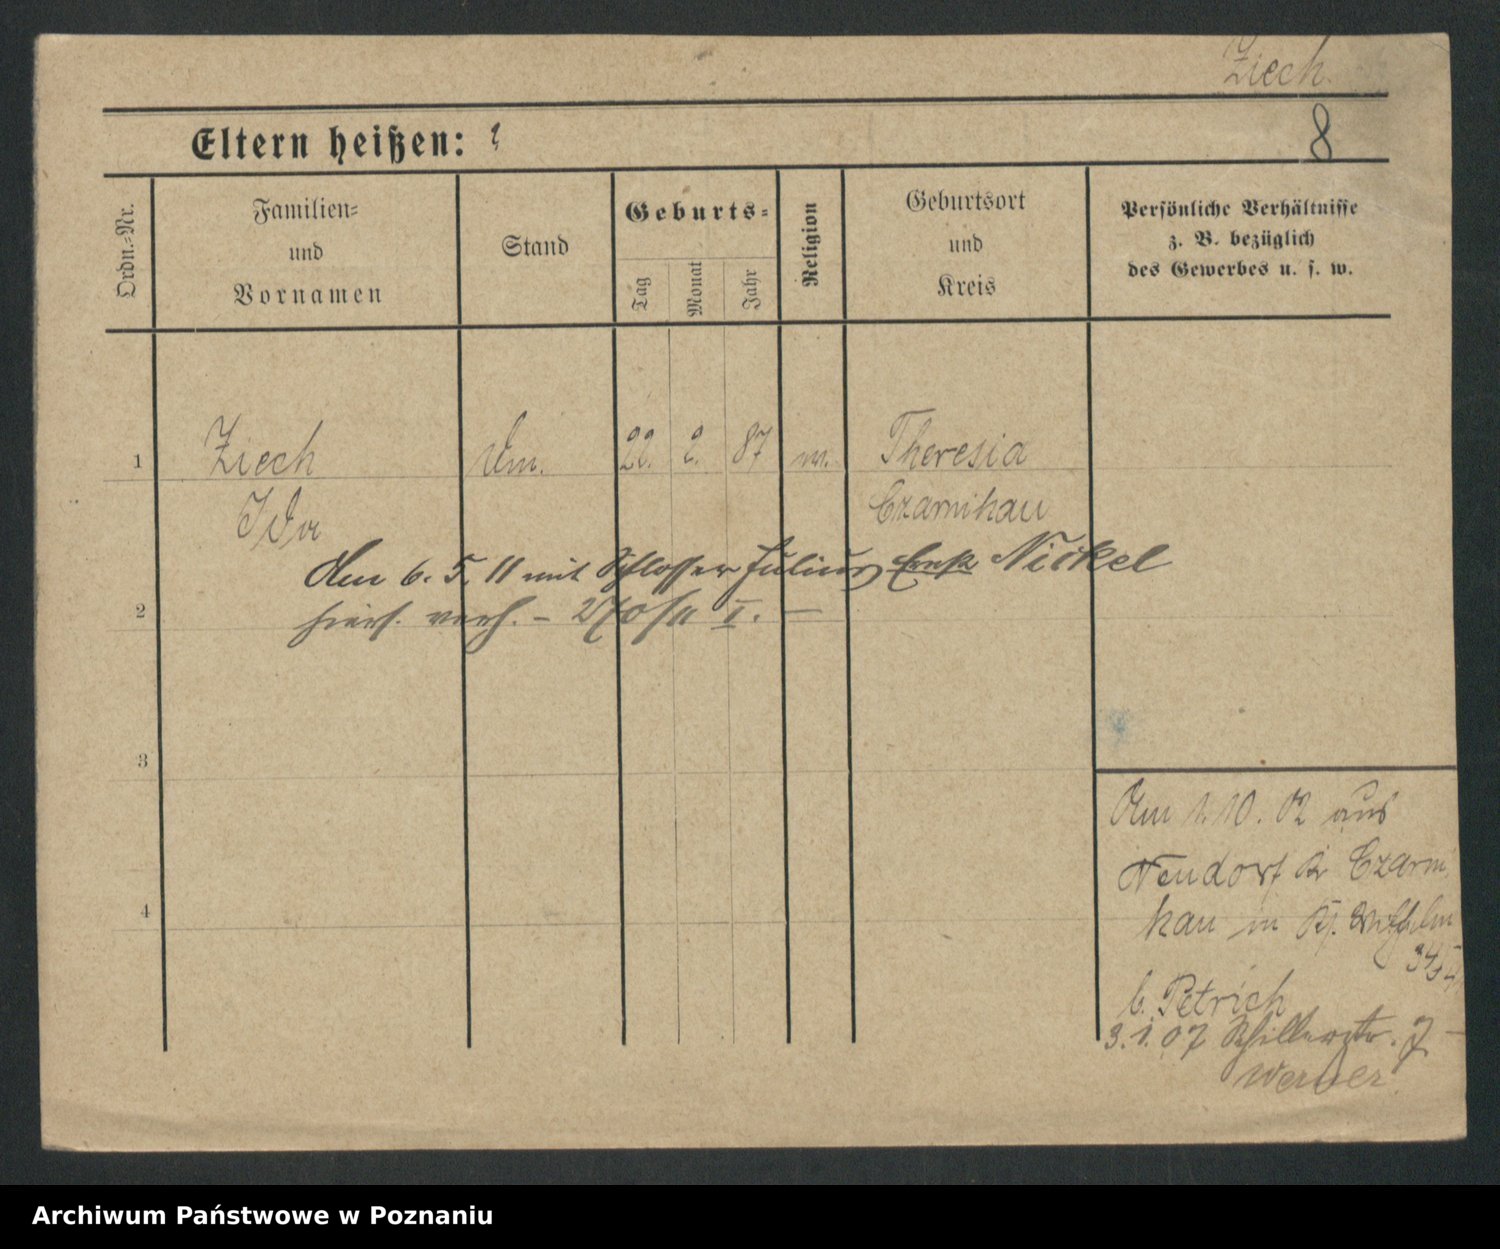 Ziech
8
Eltern heißen: ?
Ordn.-Nr.
Familien-
und
Vornamen
Stand
Geburts-
Tag
Monat
Jahr
Religion
Geburtsort
und
Kreis
Persönliche Verhältnisse
z. B. bezüglich
des Gewerbes u. s. w.
1 Ziech 22. 2. 87 Theresia
Ida Czarnikau
Am 6. 5. 11 mit Schlosser Julius Nickel
2 hiers. verh. –
3
4
Am 1. 10. 02 aus
Neudorf Kr Czarni
kau in
b. Petrich
3. 1. 07 Schillerstr. 7
Werner
Archiwum Państwowe w Poznaniu